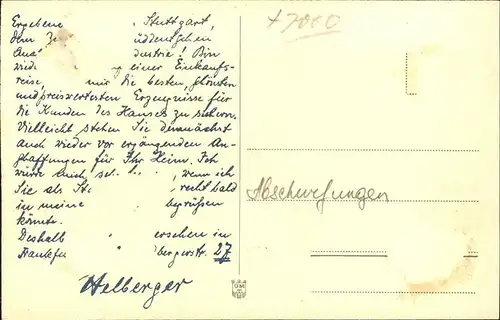 Ergebene Stuttgart,
dem üddeutschen
dustrie! Bin
einer Einkaufs-
reise mir die besten, schönsten
und preiswertesten Erzeugnisse für
die Kunden des Hauses zu sichern.
Vielleicht stehen Sie demnächst
auch wieder vor ergänzenden An-
schaffungen für Ihr Heim. Ich
würde mich , wenn ich
Sie als recht bald
in meine begrüßen
könnte.
Deshalb ersehen in
Frankfu bergerstr. 27
Helberger
+7000
Abschürfungen